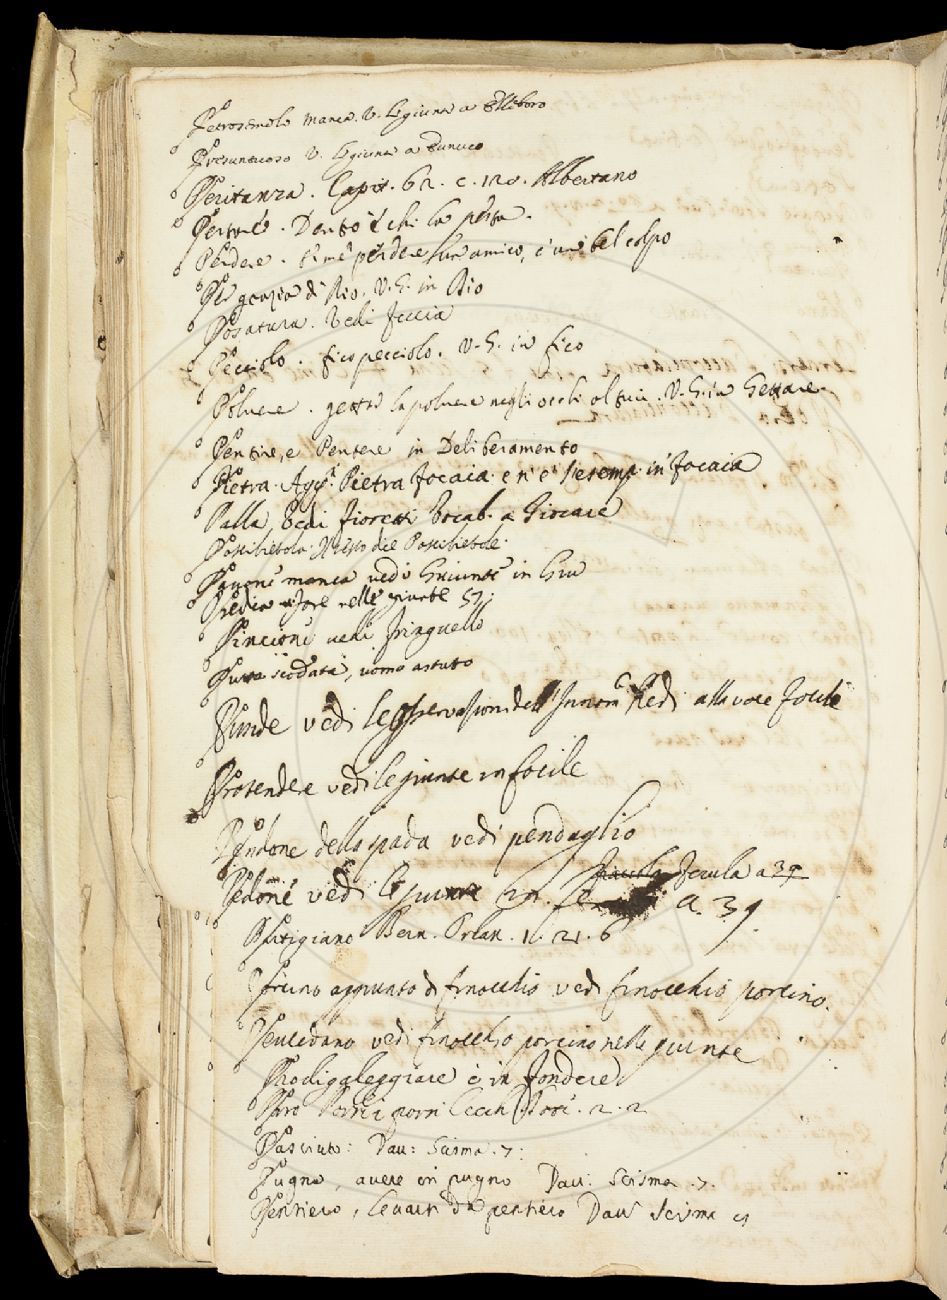 Petrosemolo manca. V. le giunte a Elleboro
Presuntuoso V. le giunte a Eunuco
Peritanza. Capit. 62. c. 120. Albertano
Per tre. Dento è chi la pesta.
Perdere. perdere un amico, è un bel colpo
Per grazia di Rio. V. G. in Rio
Posatura. Vedi feccia
Pecciolo. fico pecciolo. V. G. in fico
Polvere. gettar la polvere negli occhi altrui. V. G. in Gettare
Pentire, e Pentere in Deliberamento
Pietra. Agg. Pietra focaia. e n'è l'esemp. in focaia
Palla, Vedi Fioretti Vocab. a Giocare
Pavone manca vedi Giunte in Gru
nelle giunte 57.
Pincione vedi fringuello
Putta scodata, uomo astuto
vedi le osservazioni dell Redi alla voce focile
Protendere vedi le giunte in focile
Pendone della spada vedi pendaglio
Ferula a 39
Pedone vedi le giunte in a. 39.
Putigiano Bern. Orlan. 1. 21. 6
appunto di finocchio vedi finocchio porcino.
Peucedano vedi finocchio porcino nelle giunte
Prodigaleggiare è in fondere
2. 2
Pasciuto: Dav: Scisma. 7:
Pugno, avere in pugno Dav: Scisma. 7.
Pensiero, levarsi da pensiero Dav Scisma